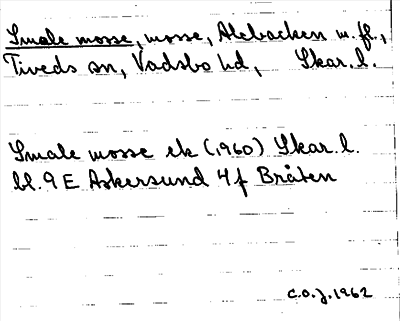 Smale mosse, mosse, Alebacken m. fl.,
Tiveds sn, Vadsbo hd, Skar. l.
Smale mosse ek (1960) Skar. l.
bl. 9 E Askersund 4 f Bråten
C.O.J. 1962